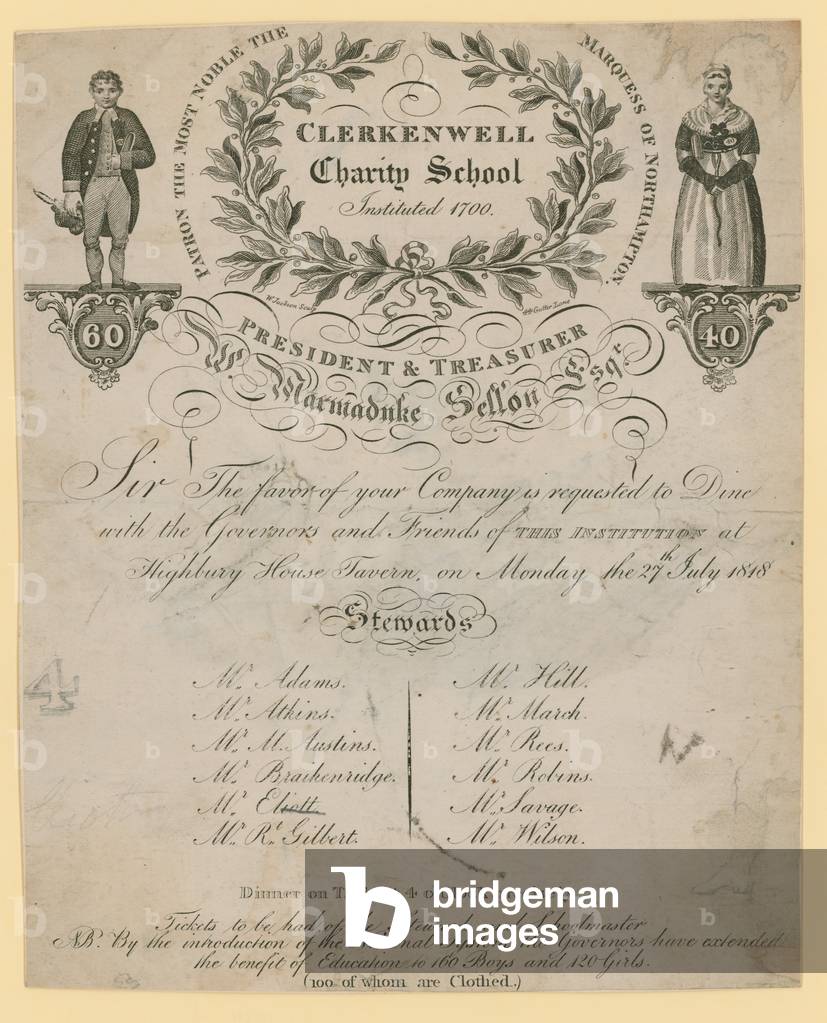 PATRON THE MOST NOBLE THE MARQUESS OF NORTHAMPTON.
CLERKENWELL
Charity School
Instituted 1700.
W. Jackson Sculp 44 Gutter Lane
60
40
PRESIDENT & TREASURER
Wm. Marmaduke Sellon Esqr.
Sir The favor of your Company is requested to Dine
with the Governors and Friends of THIS INSTITUTION at
Highbury House Tavern, on Monday the 27th July 1818
Stewards
Mr. Adams. Mr. Hill.
Mr. Atkins. Mr. March.
Mr. M. Austins. Mr. Rees.
Mr. Braikenridge. Mr. Robins.
Mr. Eliott. Mr. Savage.
Mr. Rt. Gilbert. Mr. Wilson.
4
Dinner on 4
Tickets to be had of Schoolmaster
NB. By the introduction of the Governors have extended
the benefit of Education to 160 Boys and 120 Girls.
(100 of whom are Clothed.)
b bridgeman
images